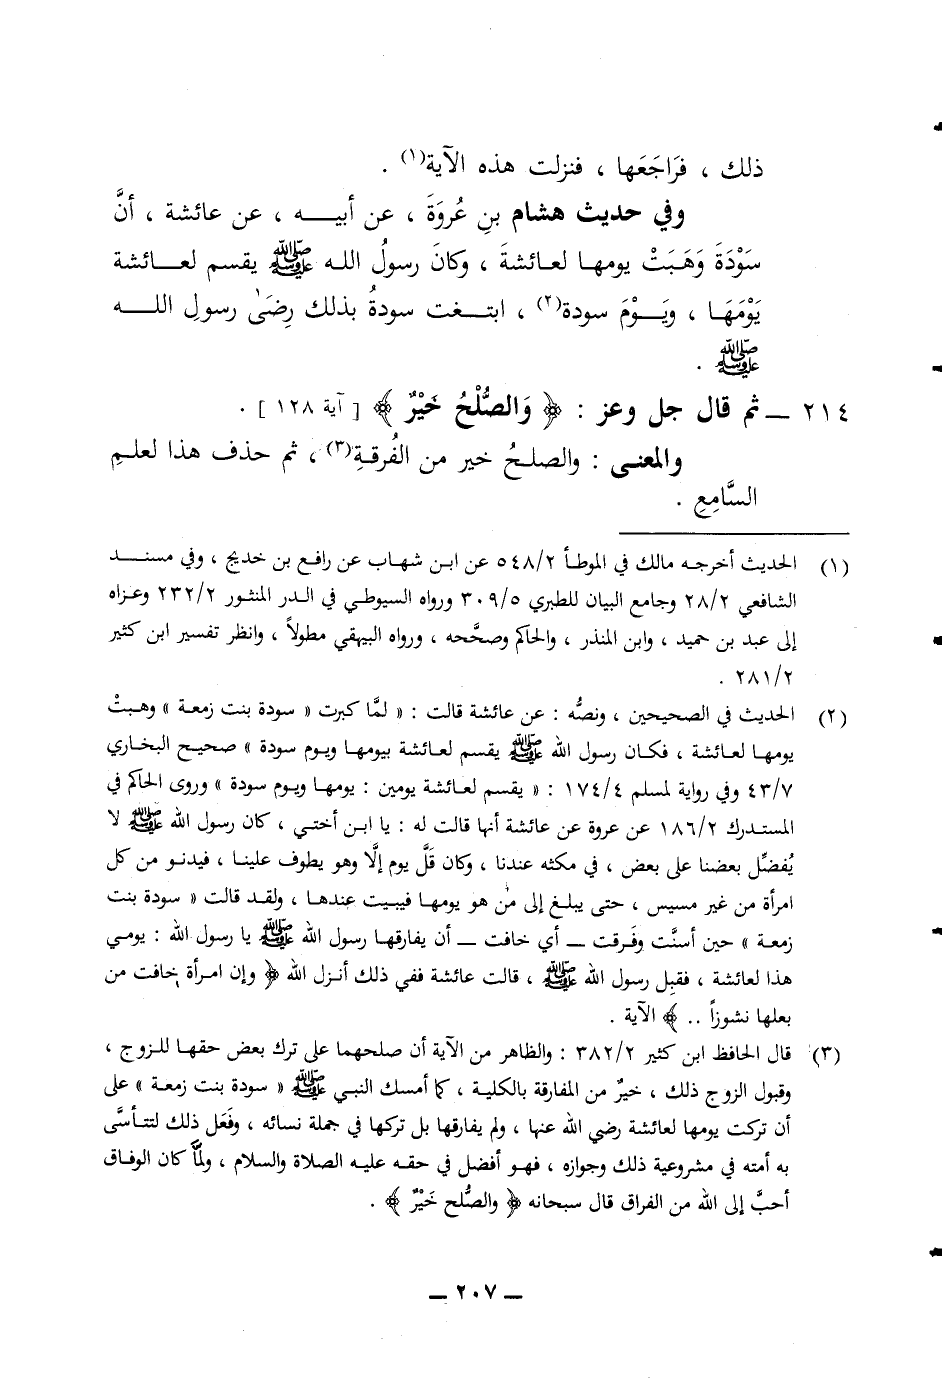 ذلك ، فَرَاجَعَها ، فنزلت هذه الآية(١) .
وفي حديث هشام بنِ عُروَةَ ، عن أبيـــه ، عن عائشة ، أنَّ
سَوْدَةَ وَهَبَتْ يومهـا لعائشةَ ، وكانَ رسولُ اللـه ﷺ يقسم لعـــائشة
يَوْمَهَـا ، ويَـــوْمَ سودة(٢) ، ابتـــغت سودةُ بذلك رِضَىٰ رسولِ اللـــه
ﷺ .
٢١٤ ــ ثم قال جل وعز : ﴿ وَالصُّلْحُ خَيْرٌ ﴾ [ آية ١٢٨ ] .
والمعنـى : والصلـحُ خير من الفُرقـةِ(٣) ، ثم حذف هذا لعلـمِ
السَّامِعِ .
(١) الحديث أخرجـه مالك في الموطـأ ٥٤٨/٢ عن ابـن شهـاب عن رافـع بن خديـج ، وفي مسنـــد
الشافعي ٢٨/٢ وجامع البيان للطبري ٣٠٩/٥ ورواه السيوطـي في الدر المنثور ٢٣٢/٢ وعـزاه
إلى عبد بن حميد ، وابن المنذر ، والحاكم وصحَّحه ، ورواه البيهقي مطولاً ، وانظر تفسير ابن كثير
٢٨١/٢ .
(٢) الحديث في الصحيحين ، ونصُّه : عن عائشة قالت : « لمَّا كبرت « سودة بنت زمعة » وهـبتْ
يومهـا لعـائشة ، فكـان رسول الله ﷺ يقسم لعـائشة بيومهـا ويـوم سودة » صحيـح البخـاري
٤٣/٧ وفي رواية لمسلم ١٧٤/٤ : « يقسم لعـائشة يومين : يومهـا ويـوم سودة » وروى الحاكم في
المستدرك ١٨٦/٢ عن عروة عن عائشة أنها قالت له : يا ابـن أختـي ، كان رسول الله ﷺ لا
يُفضِّل بعضنا على بعض ، في مكثه عندنا ، وكان قَلَّ يوم إلَّا وهو يطوف علينـا ، فيدنـو من كل
امرأة من غير مسيس ، حتى يبلـغ إلى مَن هو يومهـا فيبـيت عندهـا ، ولقـد قالت « سودة بنت
زمعـة » حين أسنَّت وفَـرقت ــ أي خافت ــ أن يفارقهـا رسول الله ﷺ يا رسول الله : يومـي
هذا لعائشة ، فقبِل رسول الله ﷺ ، قالت عائشة ففي ذلك أنـزل الله ﴿ وإن امـرأة خافت من
بعلها نشوزاً .. ﴾ الآية .
(٣) قال الحافظ ابن كثير ٣٨٢/٢ : والظاهر من الآية أن صلحهما على ترك بعض حقهـا للـزوج ،
وقبول الزوج ذلك ، خيرٌ من المفارقة بالكلية ، كما أمسك النبي ﷺ « سودة بنت زمعـة » على
أن تركت يومها لعائشة رضي الله عنها ، ولم يفارقها بل تركها في جملة نسائه ، وفَعَل ذلك لتتأسَّى
به أمته في مشروعية ذلك وجوازه ، فهـو أفضل في حقـه عليـه الصلاة والسلام ، ولمَّا كان الوفـاق
أحبَّ إلى الله من الفراق قال سبحانه ﴿ والصُّلح خَيْرٌ ﴾ .
ــ ٢٠٧ ــ